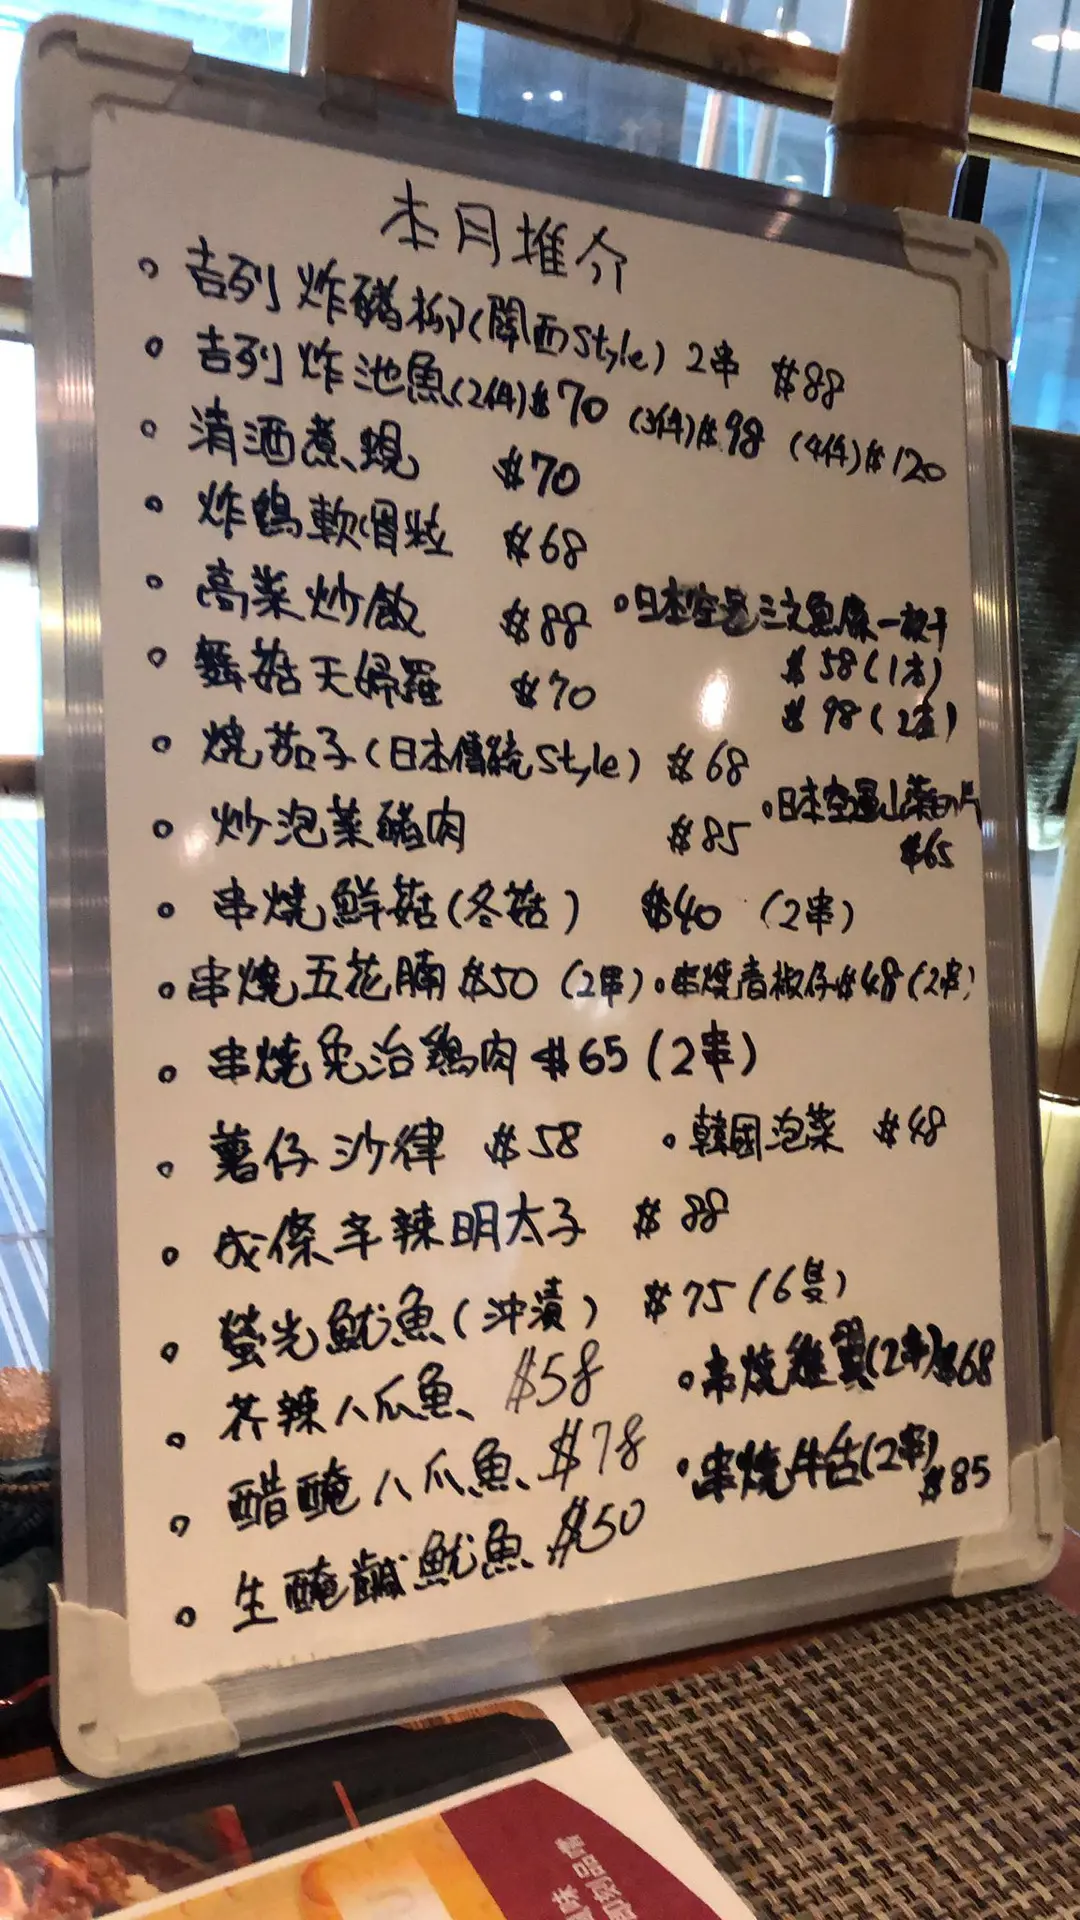 本月推介
。吉列炸豬柳(關西Style) 2串 $88
。吉列炸池魚(2件)$70 (3件)$98 (4件)$120
。清酒煮蜆 $70
。炸鷄軟骨粒 $68
。高菜炒飯 $88
。日本空運三文魚一般干
$58(1)
$98(2)
。舞菇天婦羅 $70
。燒茄子(日本傳統Style) $68
。炒泡菜豬肉 $85
。日本空運山葵片
$65
。串燒鮮菇(冬菇) $40 (2串)
。串燒五花腩 $50 (2串) 。串燒青椒仔 $48 (2串)
。串燒免治鷄肉 $65 (2串)
。薯仔沙律 $58 。韓國泡菜 $48
。成條辛辣明太子 $88
。螢光魷魚(沖漬) $75 (6隻)
。芥辣八爪魚 $58 。串燒雞翼(2串) $68
。醋醃八爪魚 $78 。串燒牛舌(2串) $85
。生醃鹹魷魚 $50